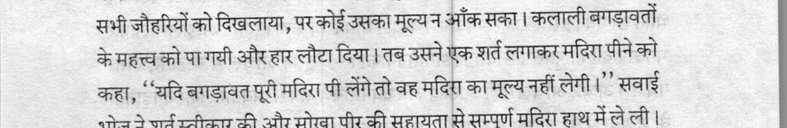 सभी जौहरियों को दिखलाया, पर कोई उसका मूल्य न आँक सका। कलाली बगड़ावतों
के महत्त्व को पा गयी और हार लौटा दिया। तब उसने एक शर्त लगाकर मदिरा पीने को
कहा, ‘‘यदि बगड़ावत पूरी मदिरा पी लेंगे तो वह मदिरा का मूल्य नहीं लेगी।’’ सवाई
भोज ने शर्त स्वीकार की और सोखा पीर की सहायता से सम्पूर्ण मदिरा हाथ में ले ली।